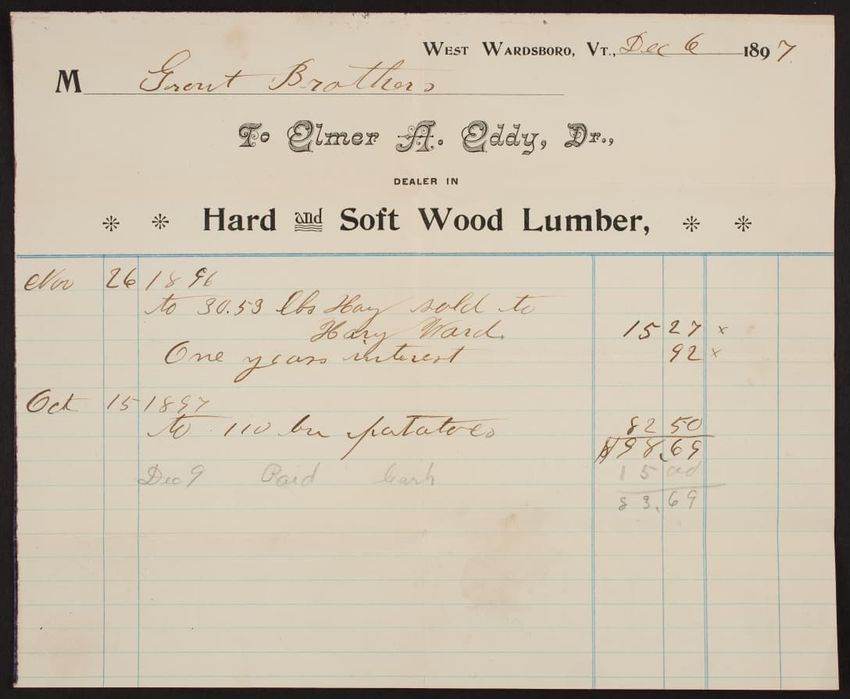 West Wardsboro, Vt., Dec 6 1897
M Grout Brothers
To Elmer A. Eddy, Dr.,
DEALER IN
Hard and Soft Wood Lumber,
Nov 26 1896
to 30.53 lbs Hay sold to
Hary Ward. 15 27 x
One years interest 92 x
Oct 15 1897
to 110 bu patatoes 82 50
$98.69
Dec 9 Paid Cash 15 00
83.69